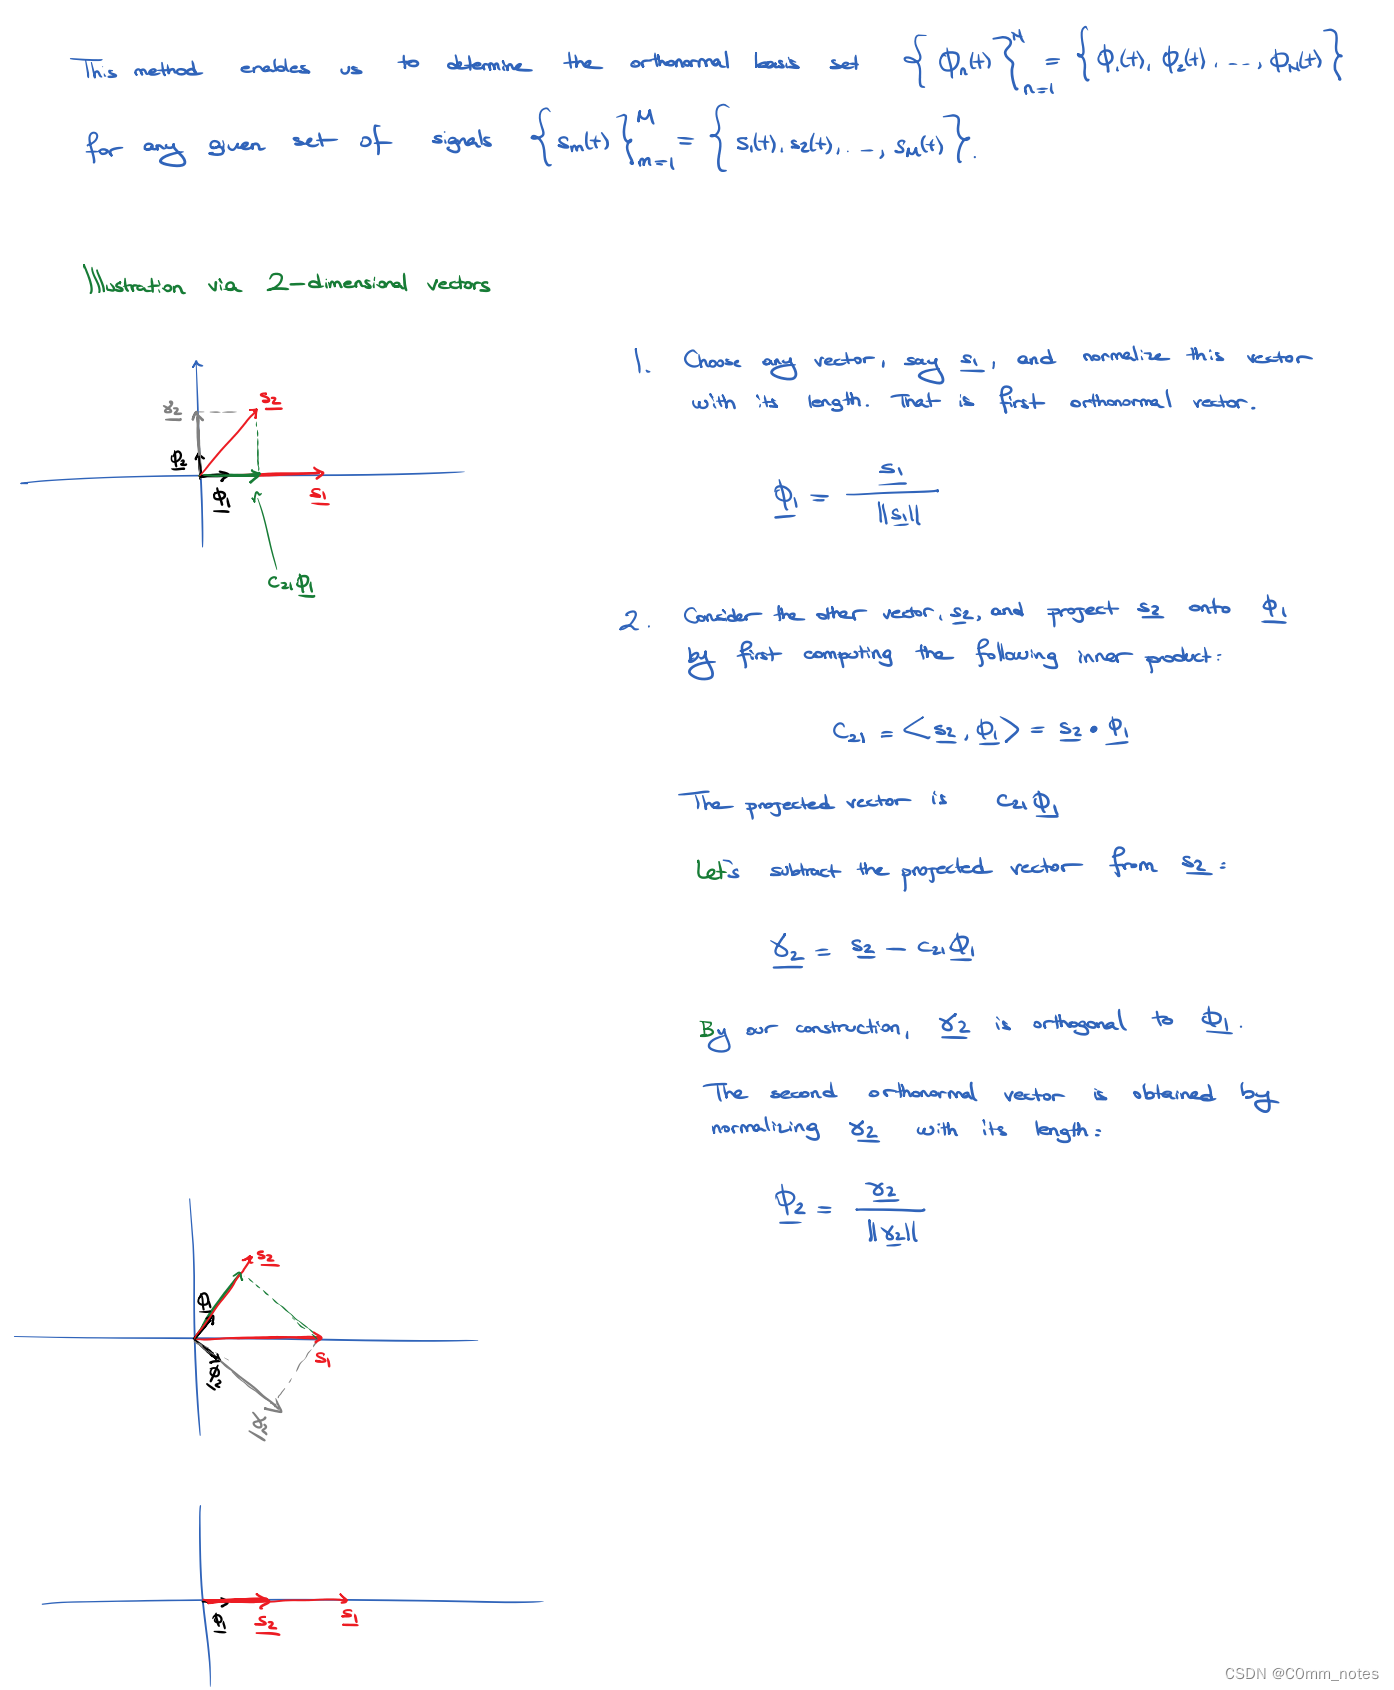 This method enables us to determine the orthonormal basis set {ϕn(t)}_{n=1}^{N} = {ϕ1(t), ϕ2(t), ..., ϕN(t)}
for any given set of signals {sm(t)}_{m=1}^{M} = {s1(t), s2(t), ..., sM(t)}.
Illustration via 2-dimensional vectors
γ2
s2
ϕ2
ϕ1
s1
c21ϕ1
1. Choose any vector, say s1, and normalize this vector
with its length. That is first orthonormal vector.
ϕ1 = s1 / ||s1||
2. Consider the other vector, s2, and project s2 onto ϕ1
by first computing the following inner product:
c21 = <s2, ϕ1> = s2 • ϕ1
The projected vector is c21ϕ1
Let's subtract the projected vector from s2:
γ2 = s2 − c21ϕ1
By our construction, γ2 is orthogonal to ϕ1.
The second orthonormal vector is obtained by
normalizing γ2 with its length:
ϕ2 = γ2 / ||γ2||
s2
ϕ1
s1
ϕ2
γ2
ϕ1
s2
s1
CSDN @C0mm_notes